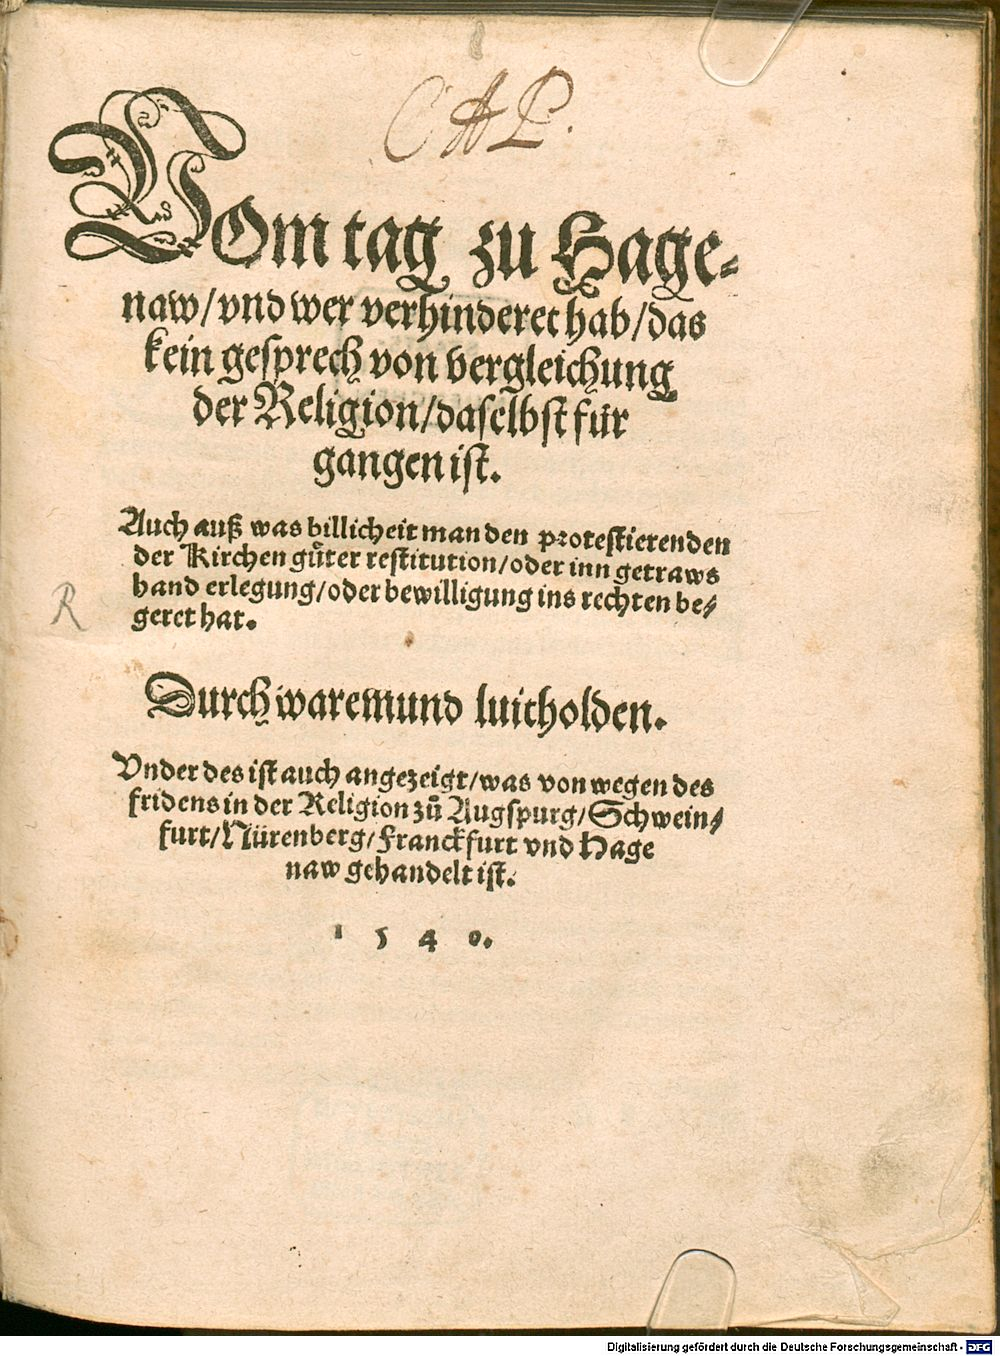 CAP.
Vom tag zu Hage-
naw/vnd wer verhinderet hab/das
kein gesprech von vergleichung
der Religion/daselbst für
gangen ist.
Auch auß was billicheit man den protestierenden
der Kirchen gůter restitution/oder inn getraws
hand erlegung/oder bewilligung ins rechten be-
geret hat.
R
Durch waremund luitholden.
Vnder des ist auch angezeigt/was von wegen des
fridens in der Religion zů Augspurg/Schwein-
furt/Nürenberg/Franckfurt vnd Hage
naw gehandelt ist.
1540.
Digitalisierung gefördert durch die Deutsche Forschungsgemeinschaft - DFG